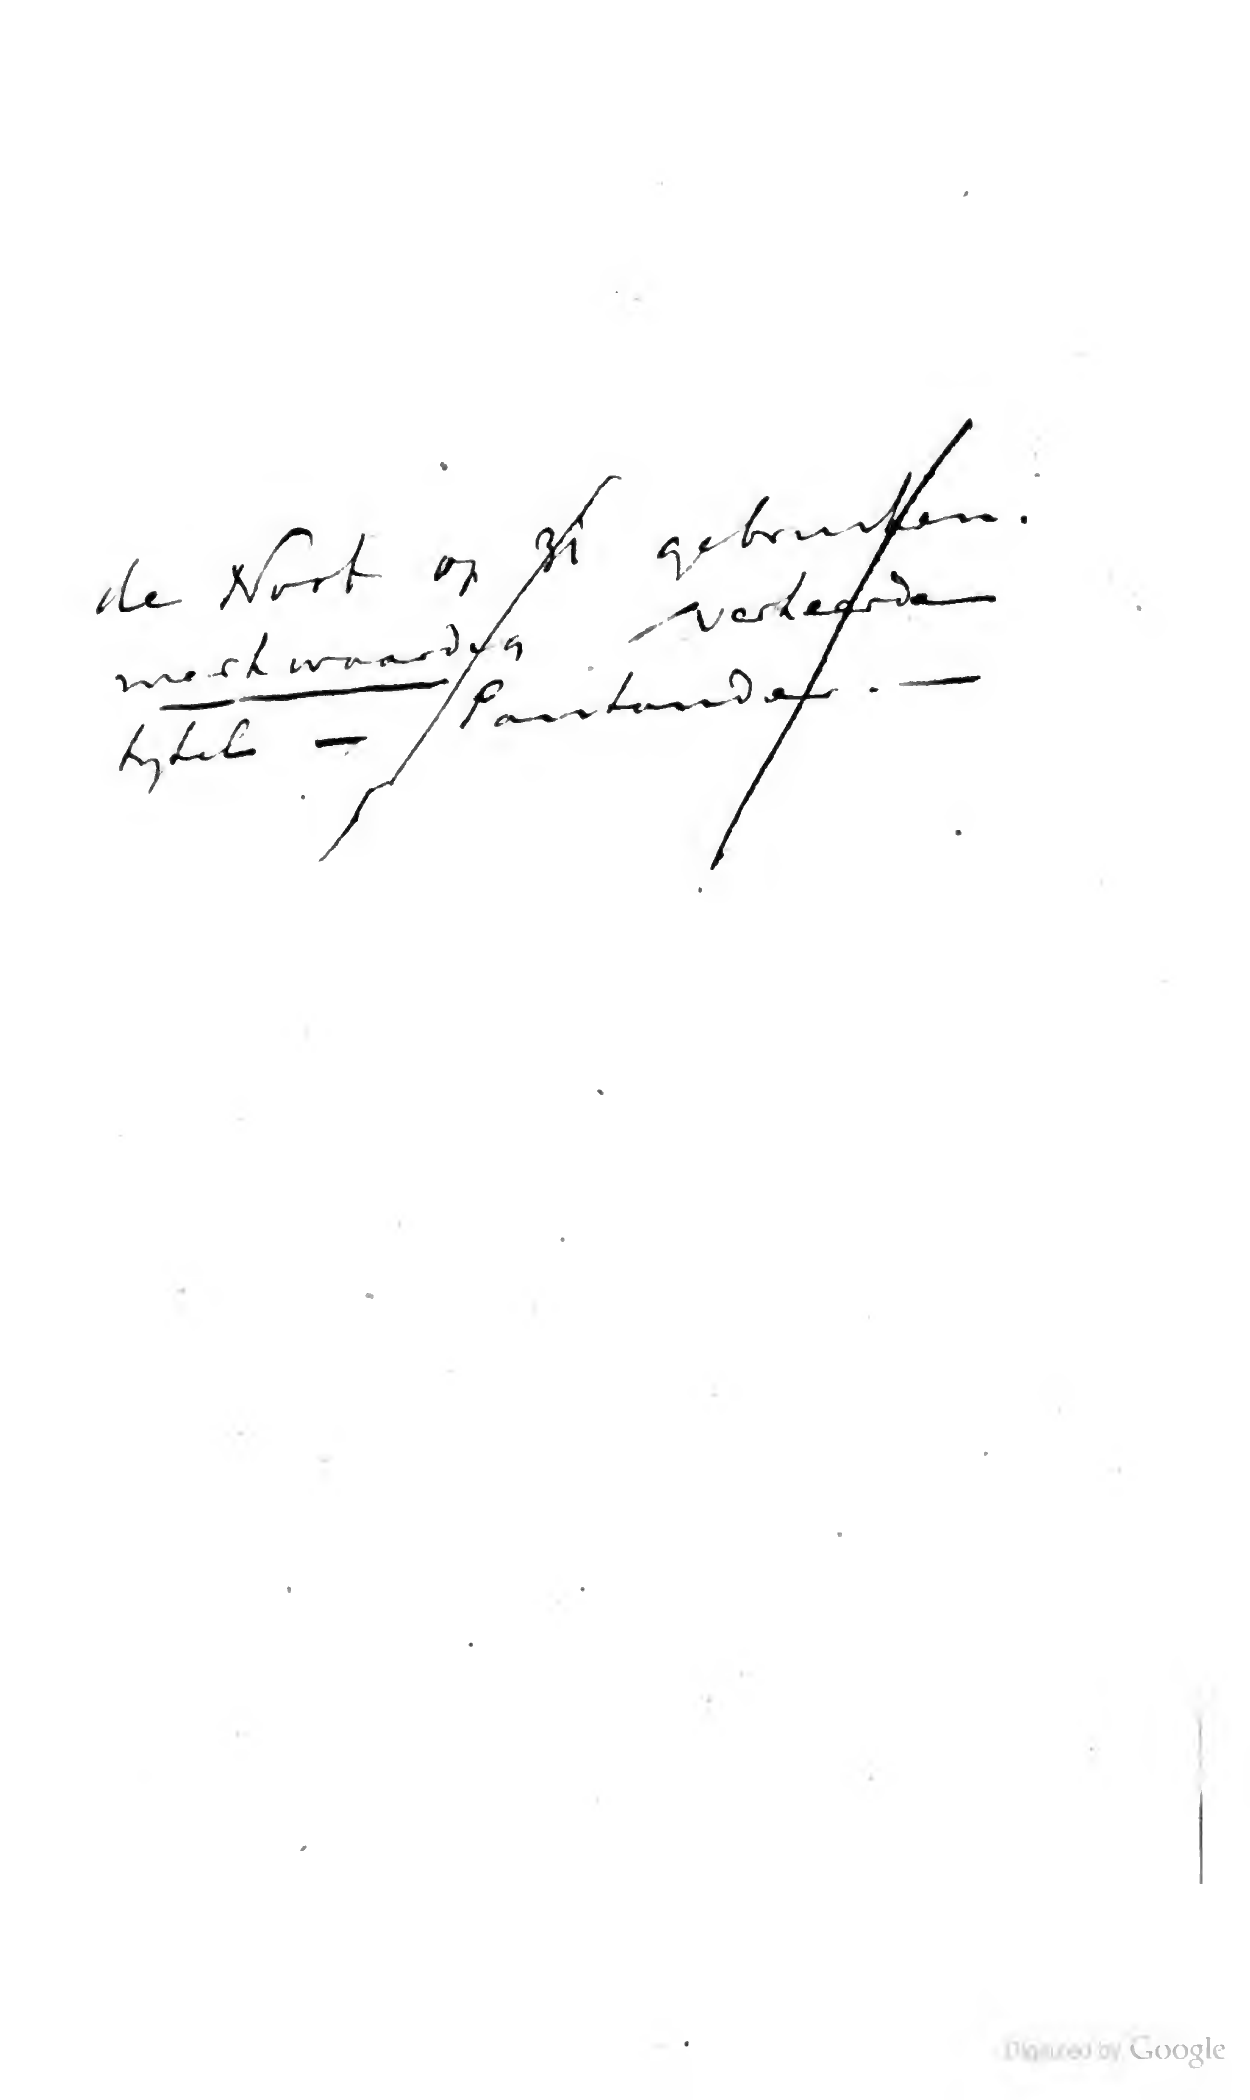 de Noot op 31 gebruiken.
merkwaardig verkeerde
tytel — Pantander. —
Digitized by Google